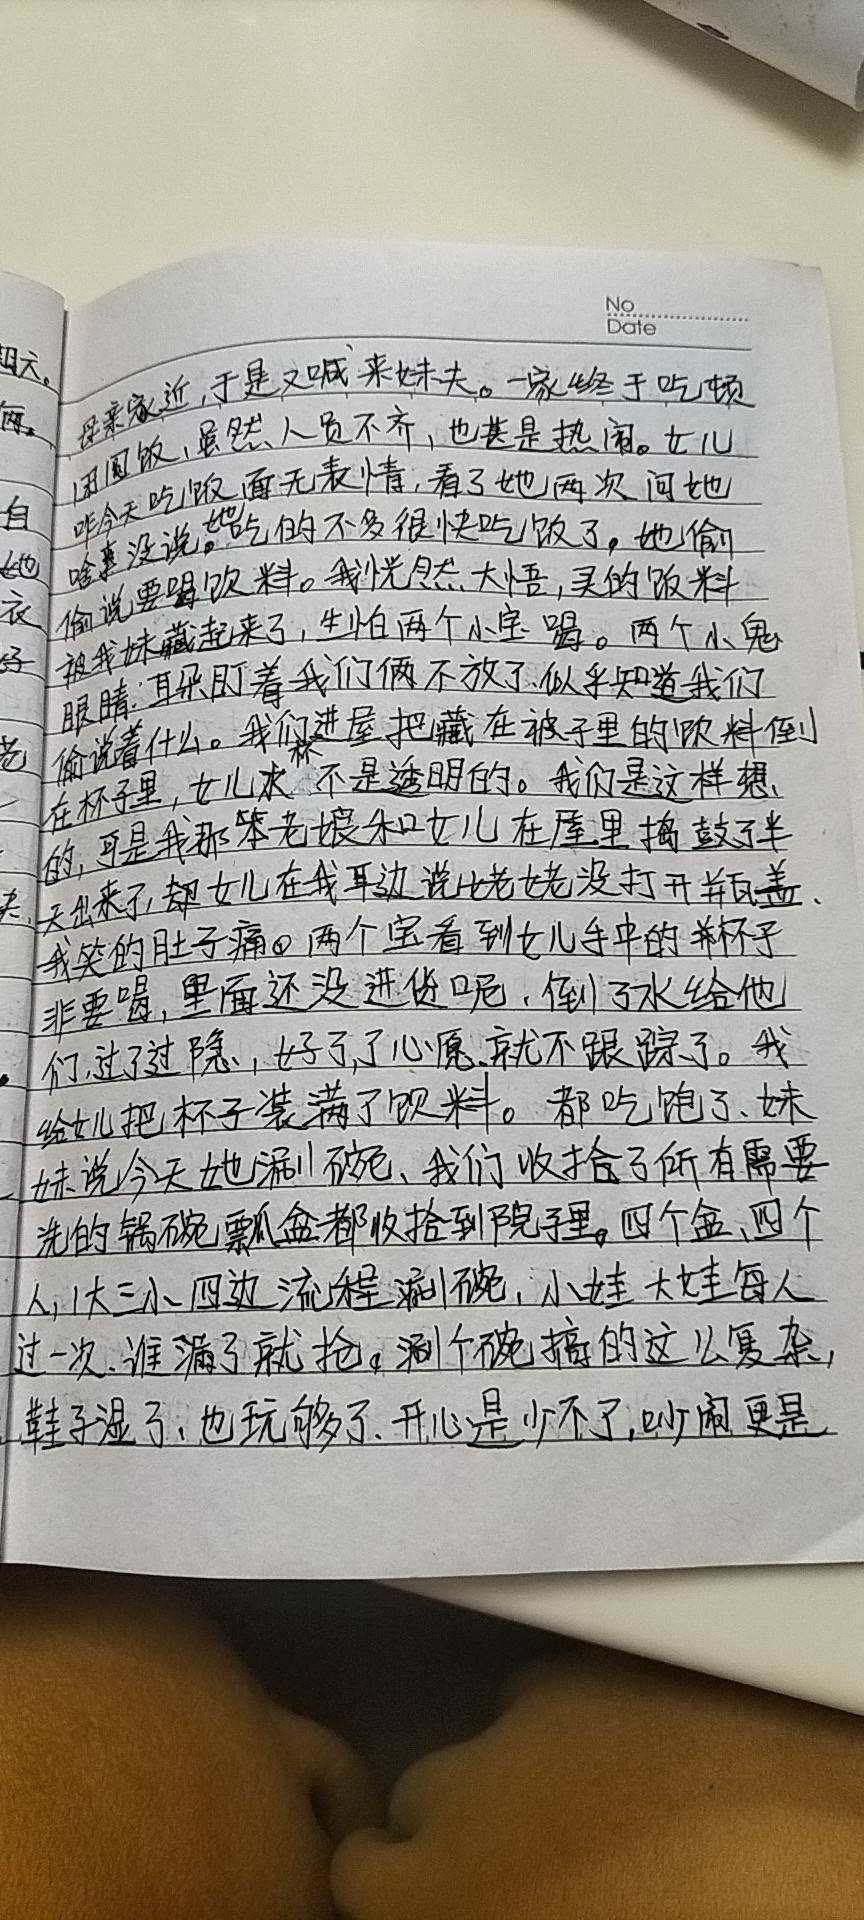 No
Date
母亲家近,于是又喊来妹夫。一家终于吃顿
团圆饭,虽然人员不齐,也甚是热闹。女儿
昨今天吃饭面无表情,看了她两次问她
啥事没说。她吃的不多很快吃饭了。她偷
偷说要喝饮料。我恍然大悟,买的饭料
被我妹藏起来了,生怕两个小宝喝。两个小鬼
眼睛、耳朵盯着我们俩不放了.似乎知道我们
偷说着什么。我们进屋把藏在被子里的饮料倒
在杯子里,女儿水杯不是透明的。我们是这样想
的,可是我那笨老娘和女儿在屋里捣鼓了半
天出来了,却女儿在我耳边说姥姥没打开瓶盖、
我笑的肚子痛。两个宝看到女儿手中的杯子
非要喝,里面还没进货呢,倒了水给他
们.过了过隐,好了,了心愿、就不跟踪了。我
给女儿把杯子装满了饮料。都吃饱了、妹
妹说今天她涮碗、我们收拾了所有需要
洗的锅碗瓢盆都收拾到院子里。四个盆、四个
人,1大三小、四边流程涮碗,小娃大娃每人
过一次、谁漏了就抢。涮个碗搞的这么复杂,
鞋子湿了、也玩够了、开心是少不了,吵闹更是
自
她
衣
好
老